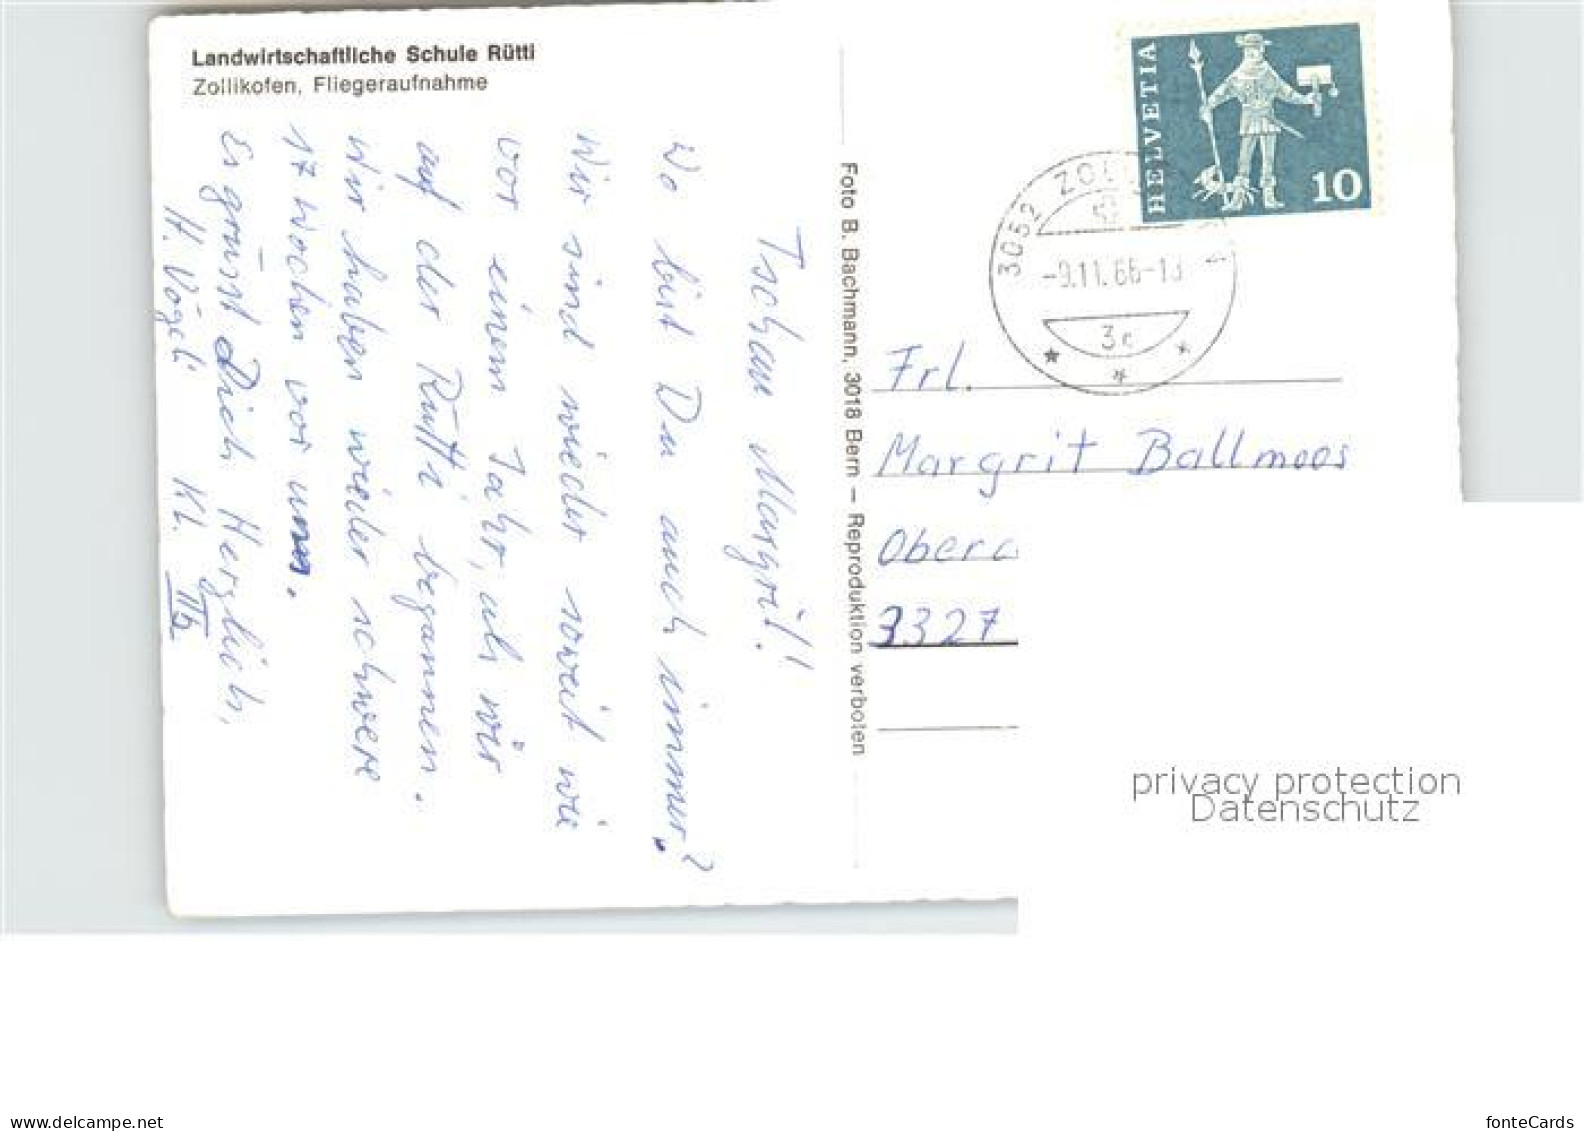 Landwirtschaftliche Schule Rütti
Zollikofen, Fliegeraufnahme
Tschau Margrit!
Wo bist Du auch immer?
Wir sind wieder soweit wie
vor einem Jahr, als wir
auf der Rütti begannen.
Wir haben wieder schwere
17 Wochen vor uns.
Es grüsst Dich Herzlich,
H. Vögeli Kl. IIb
Foto B. Bachmann, 3018 Bern – Reproduktion verboten
HELVETIA
10
3052 ZOLL
-9.11.66-13
3c
Frl.
Margrit Ballmoos
Obera
3327
privacy protection
Datenschutz
myhjs
fonteCards